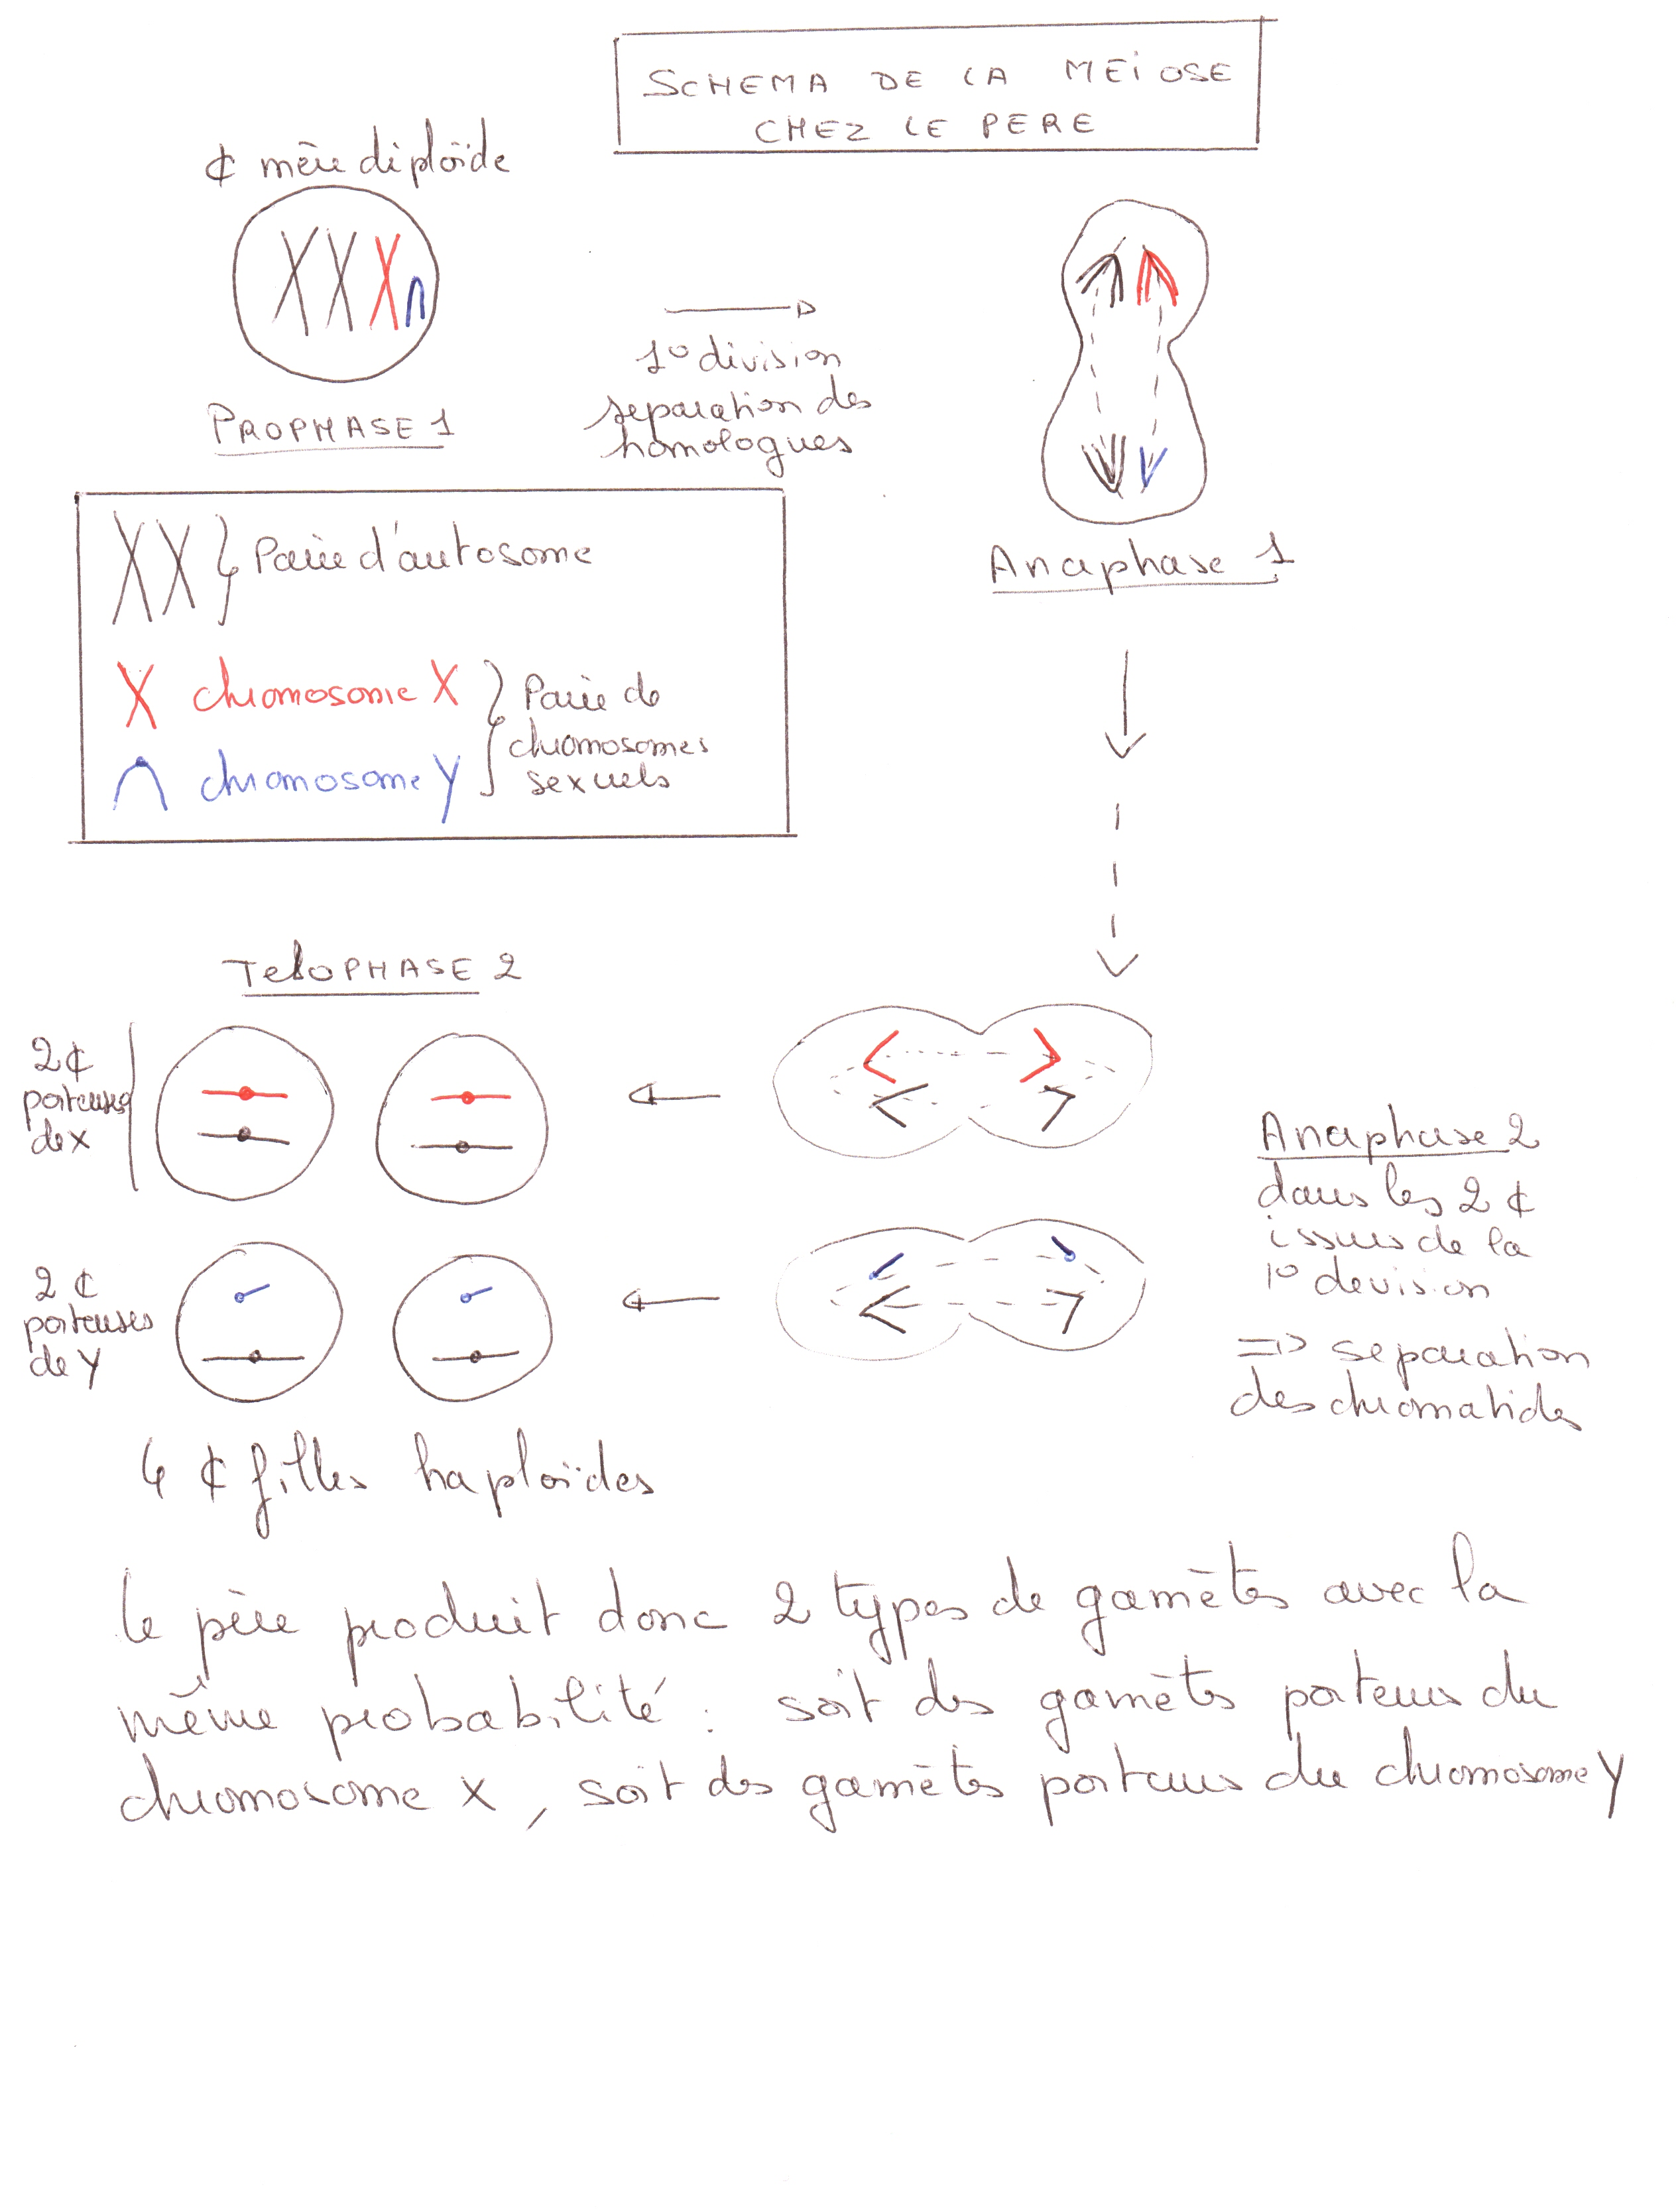 SCHEMA DE LA MEIOSE
CHEZ LE PERE
¢ mère diploïde
PROPHASE 1
1° division
separation des
homologues
Anaphase 1
Paire d'autosome
chromosome X
Paire de
chromosomes
sexuels
chromosome Y
TeloPHASE 2
2 ¢
porteuses
de x
2 ¢
porteuses
de Y
Anaphase 2
dans les 2 ¢
issues de la
1° devision
=> separation
des chromatides
4 ¢ filles haploïdes
le père produit donc 2 types de gamètes avec la
même probabilité : soit des gamètes porteurs du
chromosome X, soit des gamètes porteurs du chromosome Y